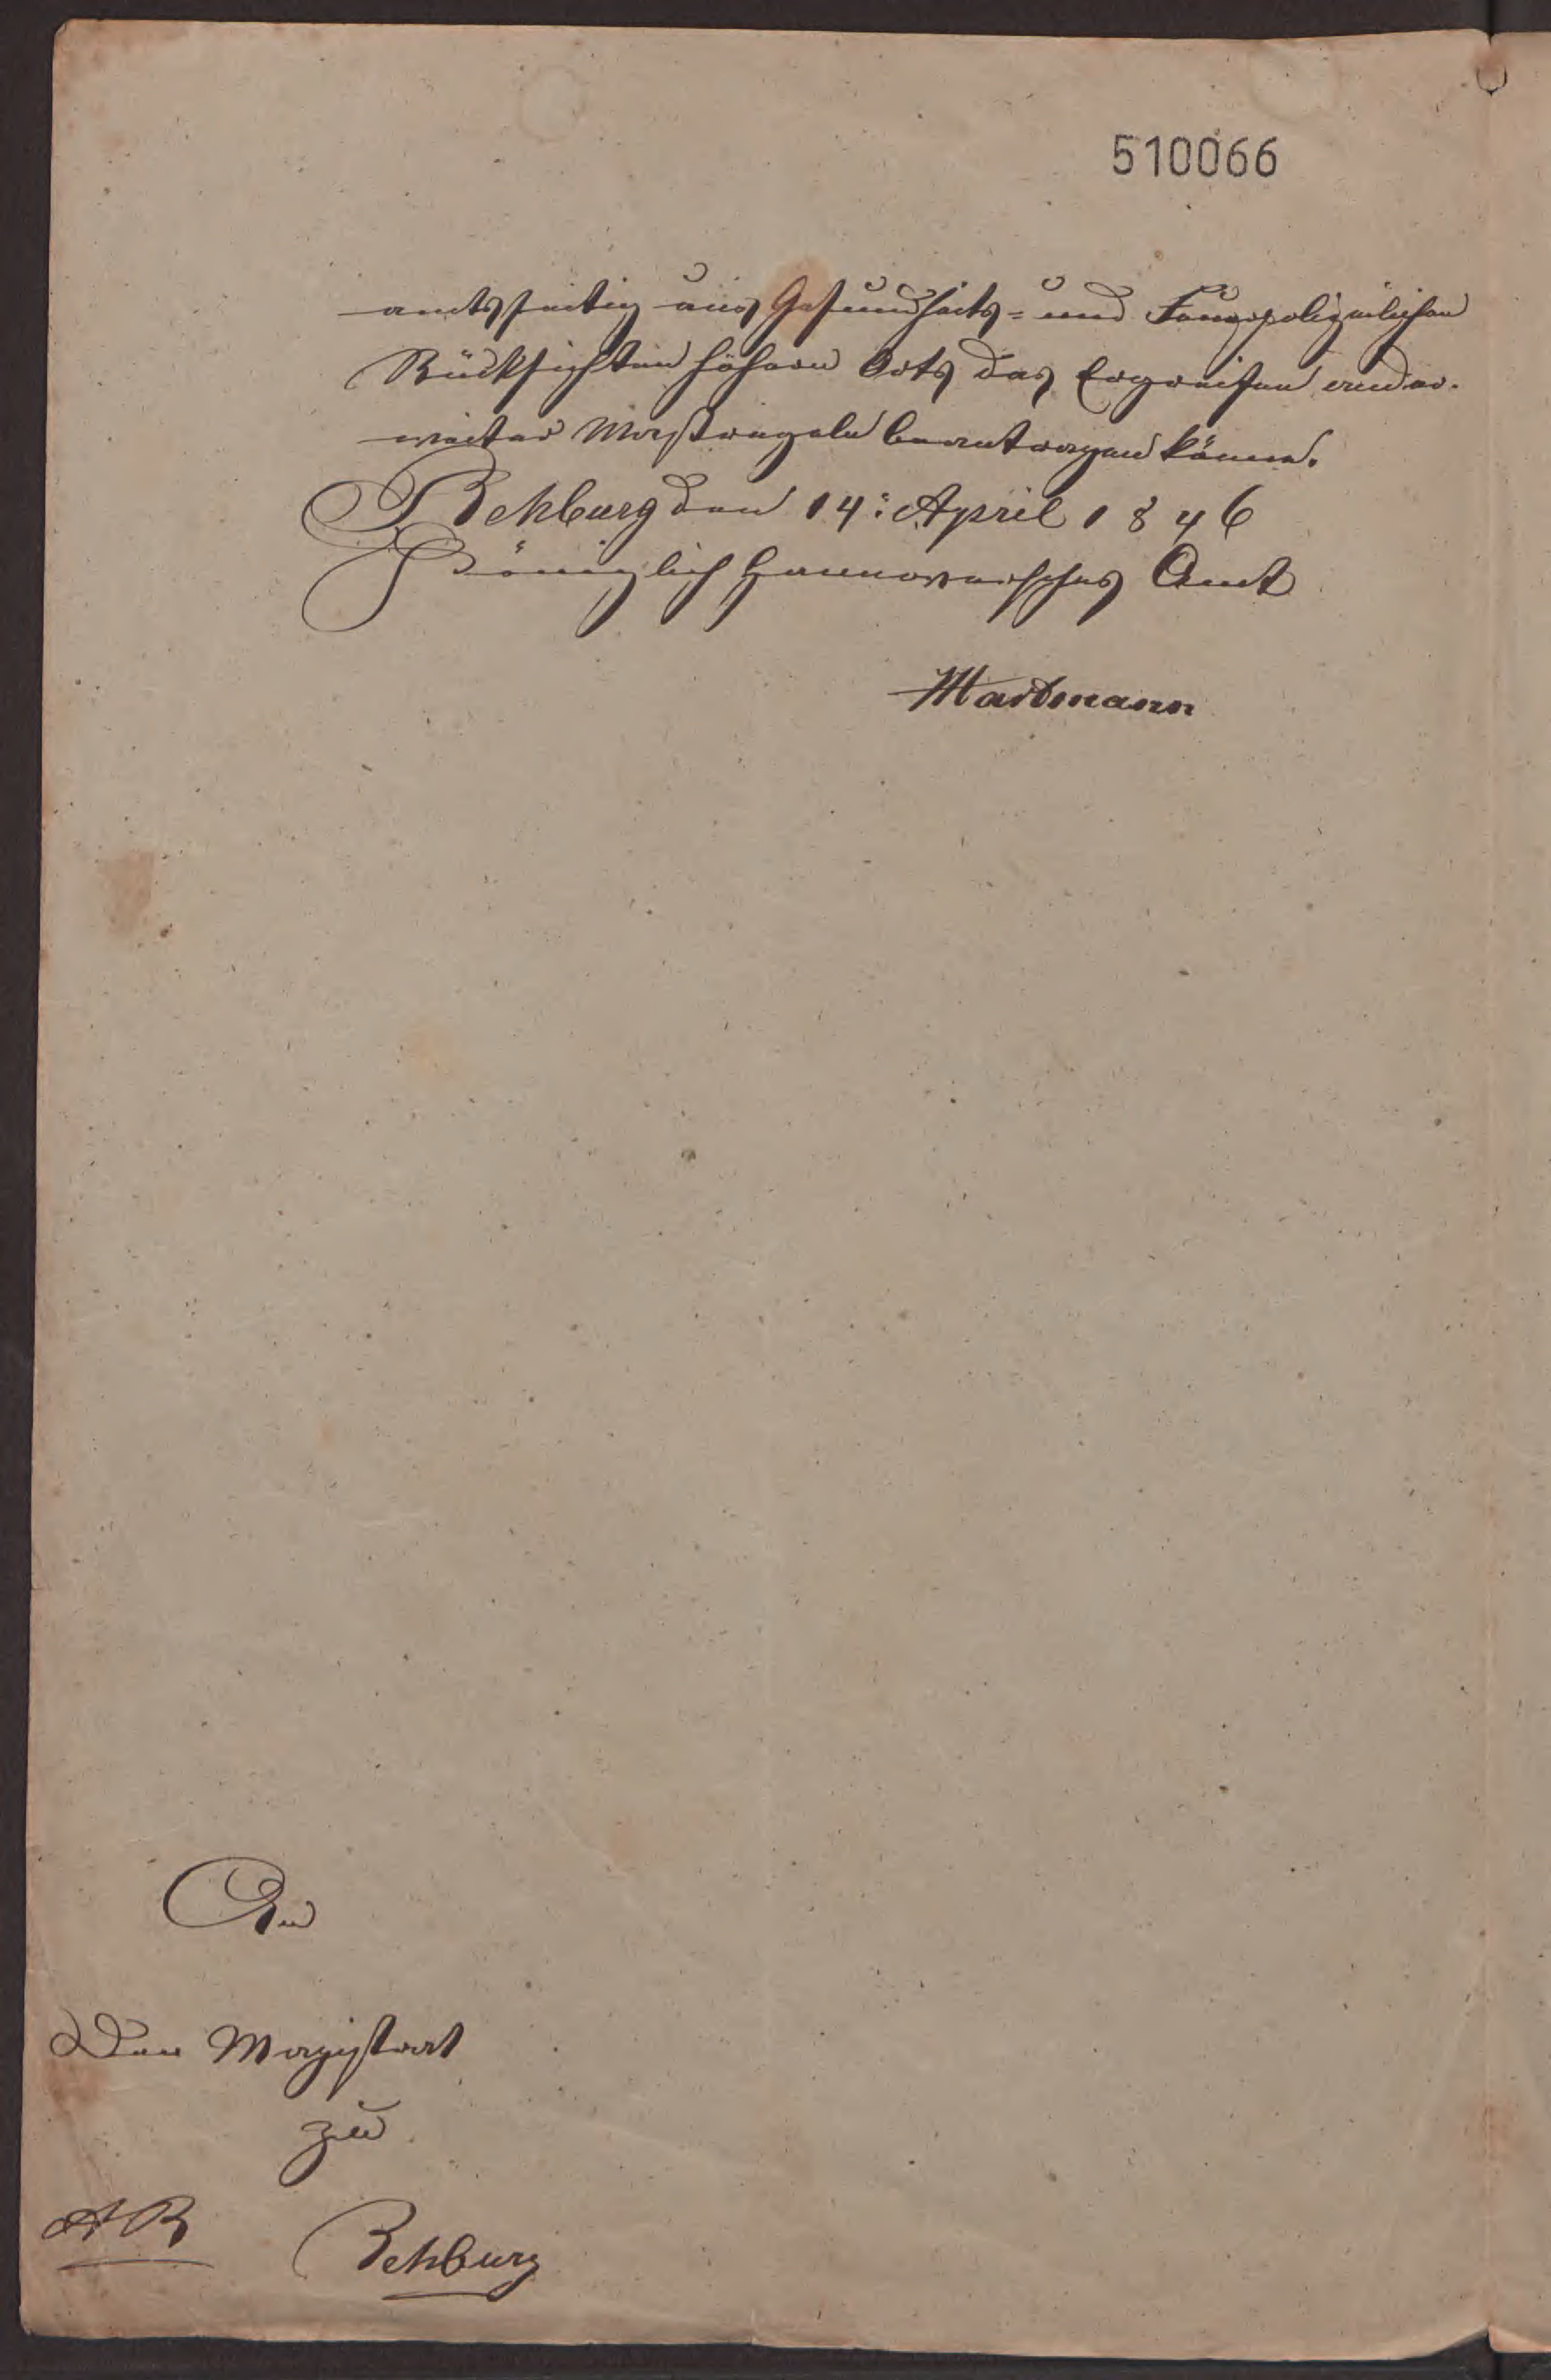 510066
amtsseitig aus Gesundheits- und Feuerpolizeilichen
Rücksichten höhern Orts das Ergreifen ander-
weiter Maßregeln beantragen könne.
Rehburg den 14: April 1846
Königlich Hannoversches Amt
Hartmann
An
Den Magistrat
zu
AR Rehburg